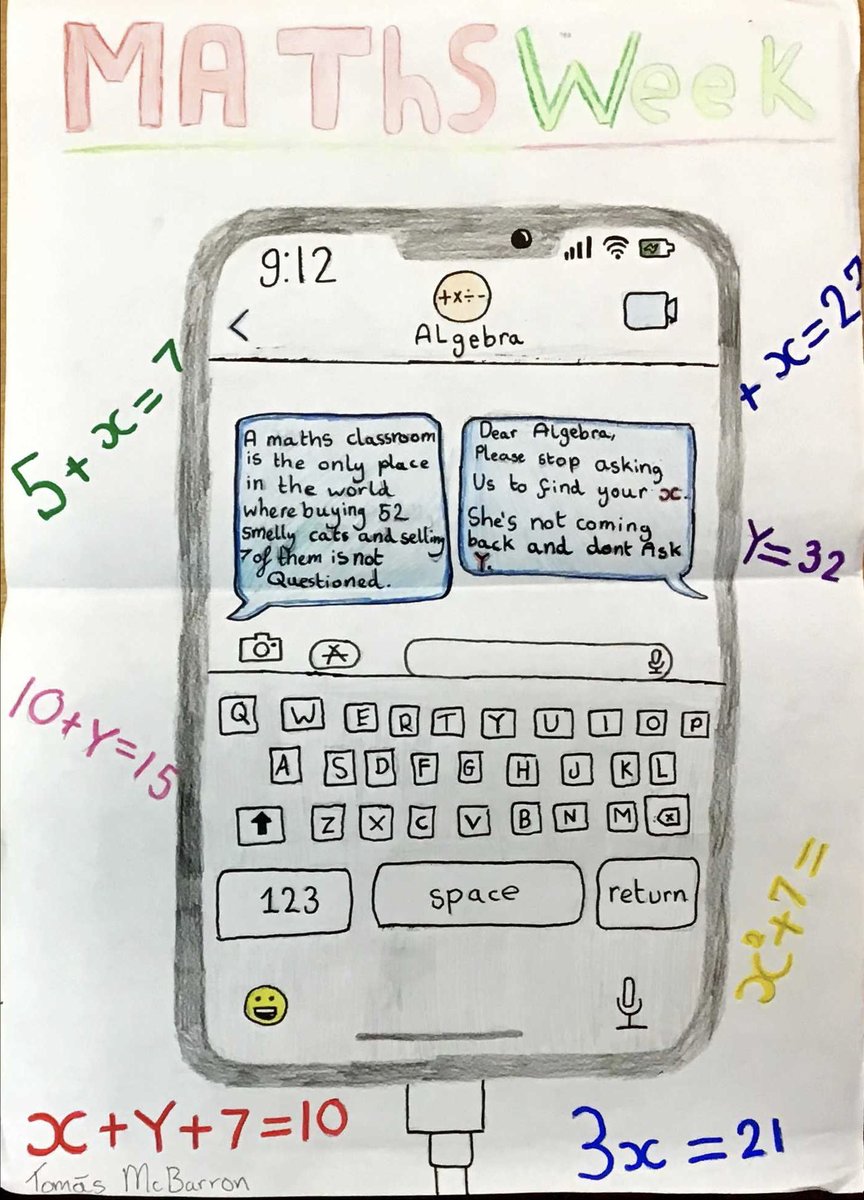 MAThS Week
9:12
+×÷-
ALgebra
5+x=7
+x=27
A maths classroom
is the only place
in the world
where buying 52
Smelly cats and selling
7 of them is not
Questioned.
Dear Algebra,
Please stop asking
Us to find your x.
She's not coming
back and dont Ask
Y.
Y=32
10+Y=15
Q W E R T Y U I O P
A S D F G H J K L
Z X C V B N M
123 space return
x²+7=
x+Y+7=10
3x=21
Tomás McBarron